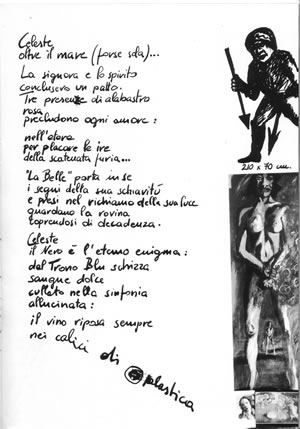 Celeste
oltre il mare (forse sola)...
La signora e lo spirito
conclusero un patto.
Tre presenze di alabastro
rosa
precludono ogni amore:
nell'etere
per placare le ire
della scatenata furia...
"La Belle" porta in se
i segni della sua schiavitú
e presi nel richiamo della sua luce
guardano la rovina
coprendosi di decadenza.
Celeste
il Nero è l'eterno enigma:
dal Trono Blu schizza
sangue dolce
cullato nella sinfonia
allucinata:
il vino riposa sempre
nei calici di plastica
210 x 70 cm.